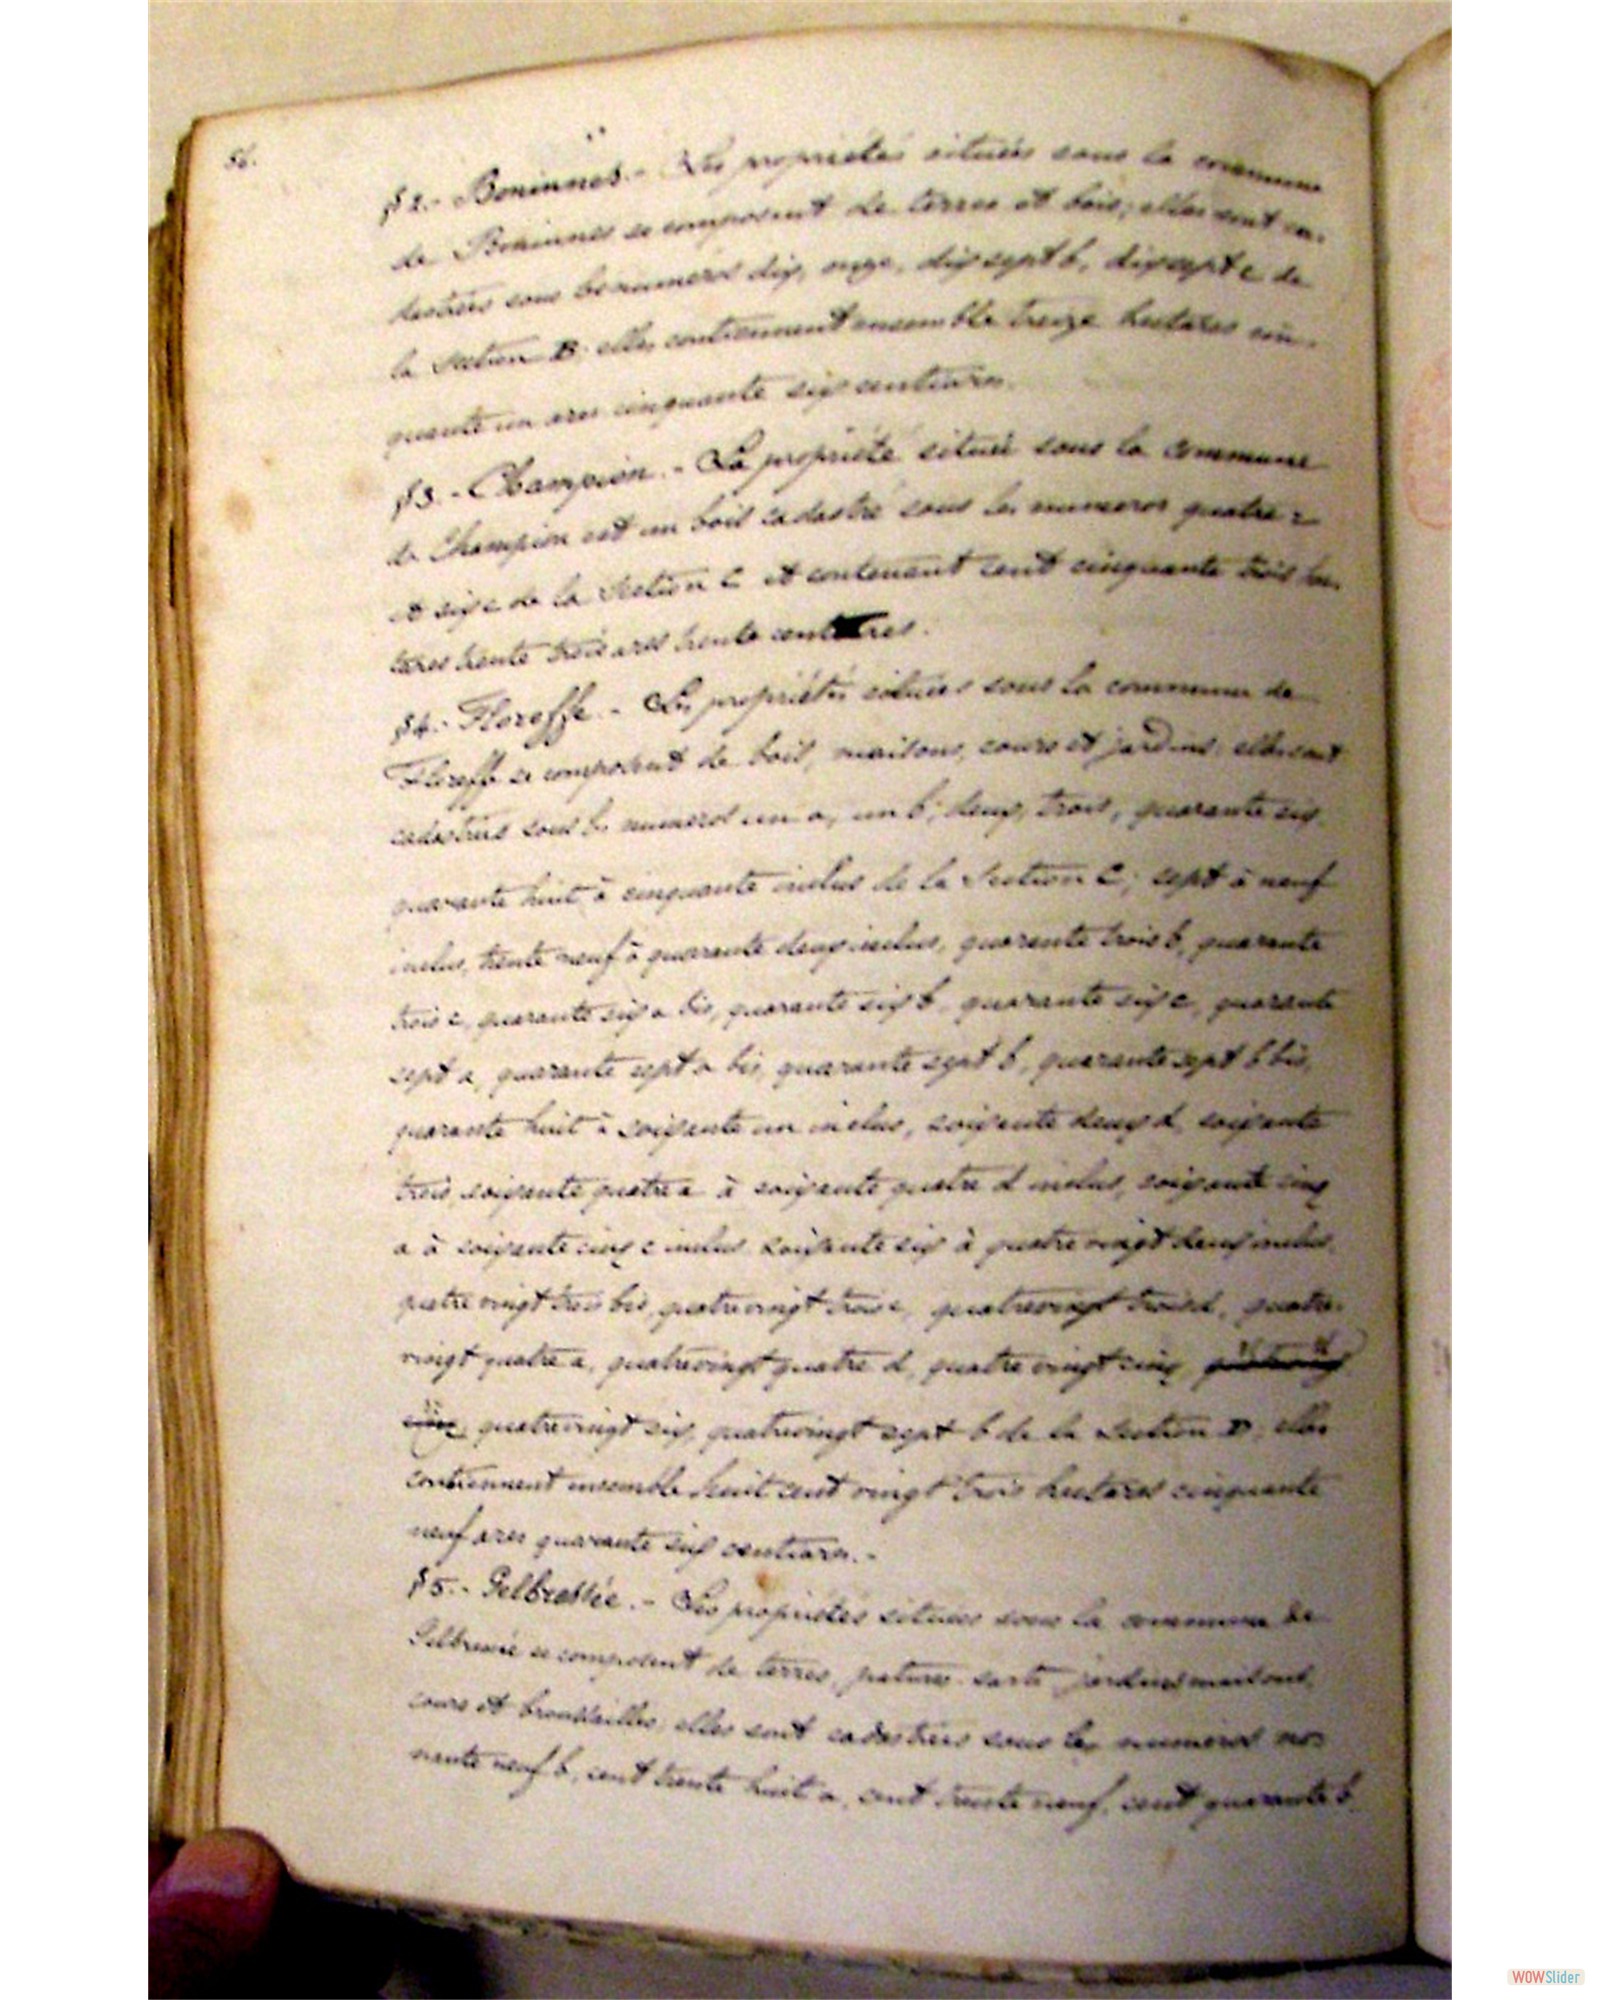 56.
§2.- Boninnes.- Les propriétés situées sous la commune
de Boninnes se composent de terres et bois; elles sont ca-
dastrées sous les numeros dix, onze, dix sept b, dix sept c de
la Section B; elles contiennent ensemble treize hectares cin-
quante un ares cinquante six centiares.
§3.- Champion.- La propriété située sous la commune
de Champion est un bois cadastré sous les numeros quatre
et six c de la Section C et contenant cent cinquante trois hec-
tares trente trois ares trente centiares.
§4.- Floreffe.- Les propriétés situées sous la commune de
Floreffe se composent de bois, maisons, cours et jardins; elles sont
cadastrées sous les numeros un a, un b, deux, trois, quarante six
quarante huit à cinquante inclus de la Section C; sept à neuf
inclus, trente neuf à quarante deux inclus, quarante trois b, quarante
trois c, quarante six a bis, quarante six b, quarante six c, quarante
sept a, quarante sept a bis, quarante sept b, quarante sept b bis,
quarante huit à soixante un inclus, soixante deux d, soixante
trois, soixante quatre a à soixante quatre d inclus, soixante cinq
a à soixante cinq c inclus soixante six à quatre vingt deux inclus,
quatre vingt trois bis, quatrevingt trois c, quatrevingt trois d, quatre
vingt quatre a, quatrevingt quatre d, quatre vingt cinq quatrevingt
cinq, quatrevingt six, quatrevingt sept b de la Section D; elles
contiennent ensemble huit cent vingt trois hectares cinquante
neuf ares quarante six centiares.-
§5.- Gelbressée.- Les propriétés situées sous la commune de
Gelbressée se composent de terres, patures, sarts jardins maisons,
cours et broussailles; elles sont cadastrées sous les numeros no-
nante neuf b, cent trente huit a, cent trente neuf, cent quarante b,
WOWSlider